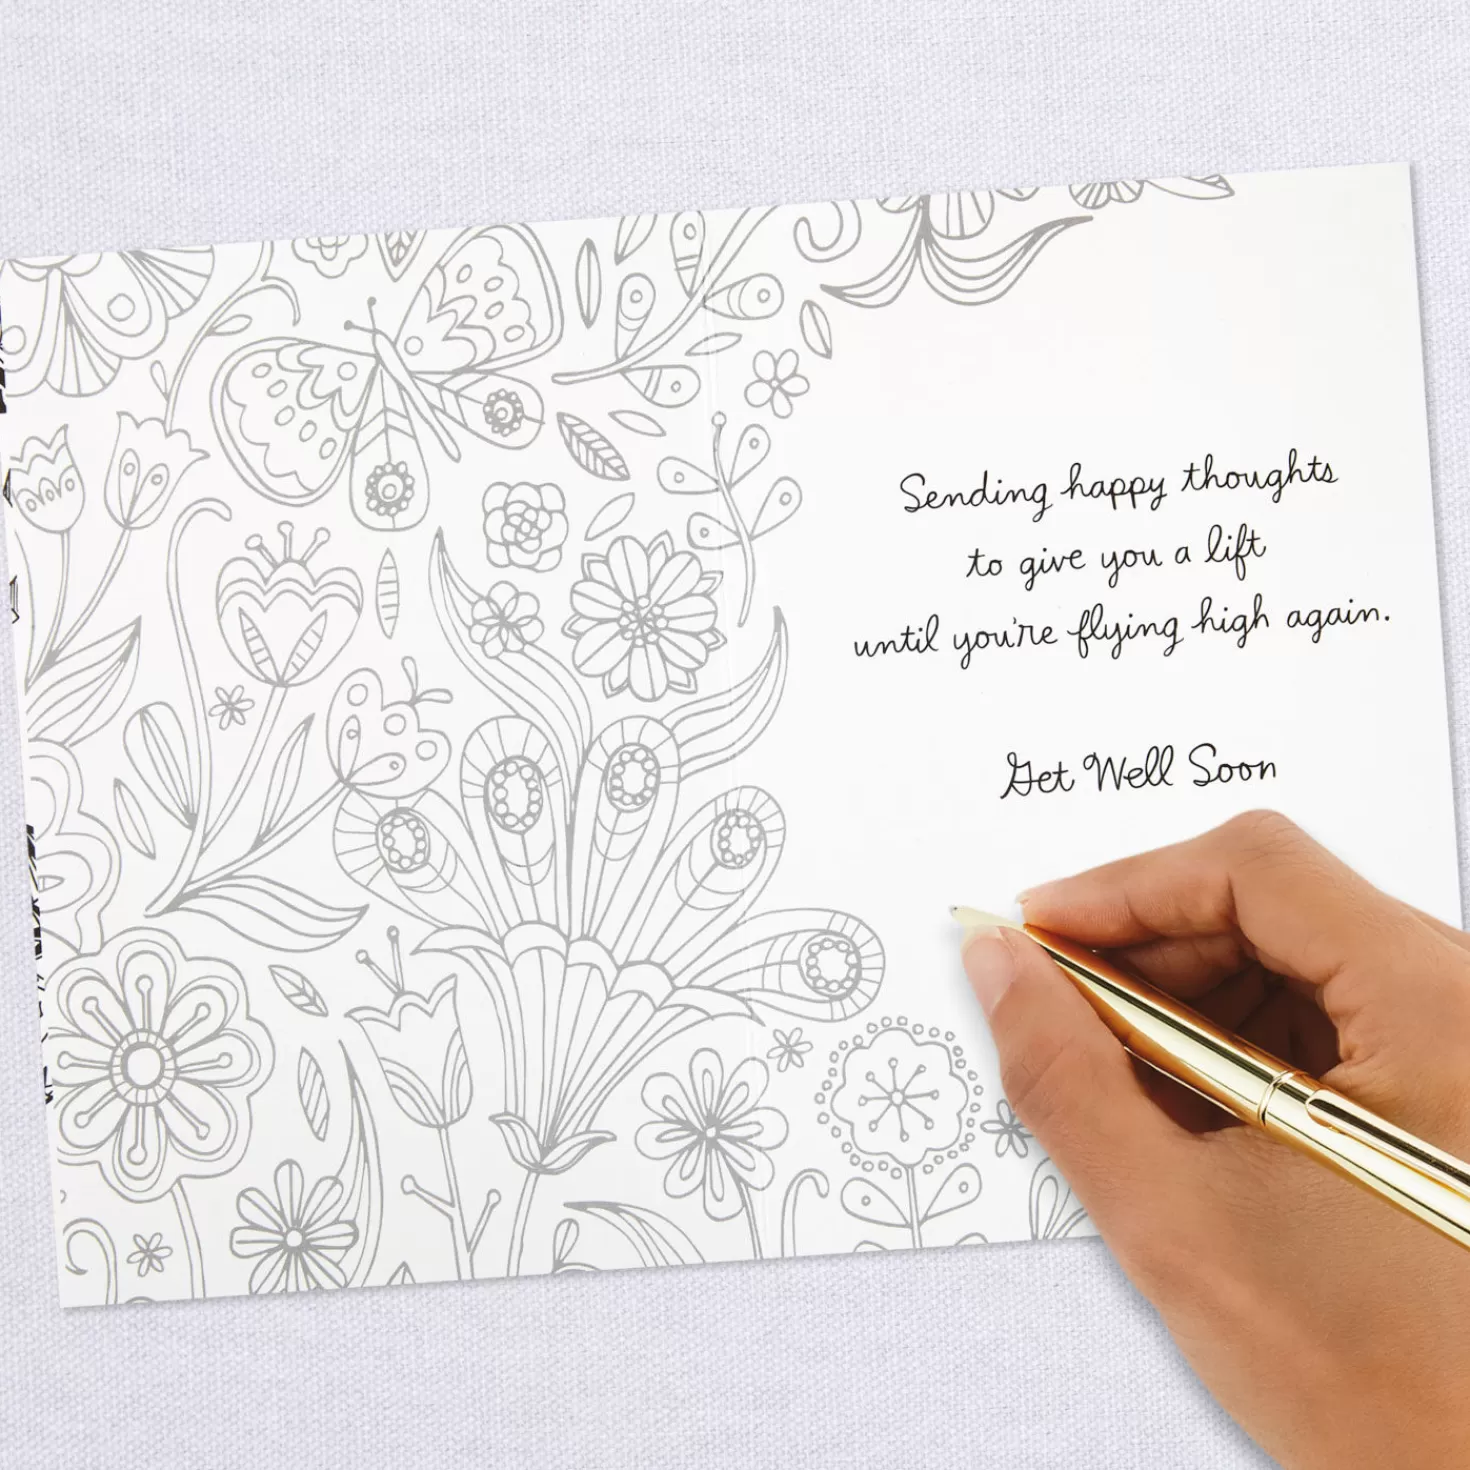 Sending happy thoughts
to give you a lift
until you're flying high again.
Get Well Soon